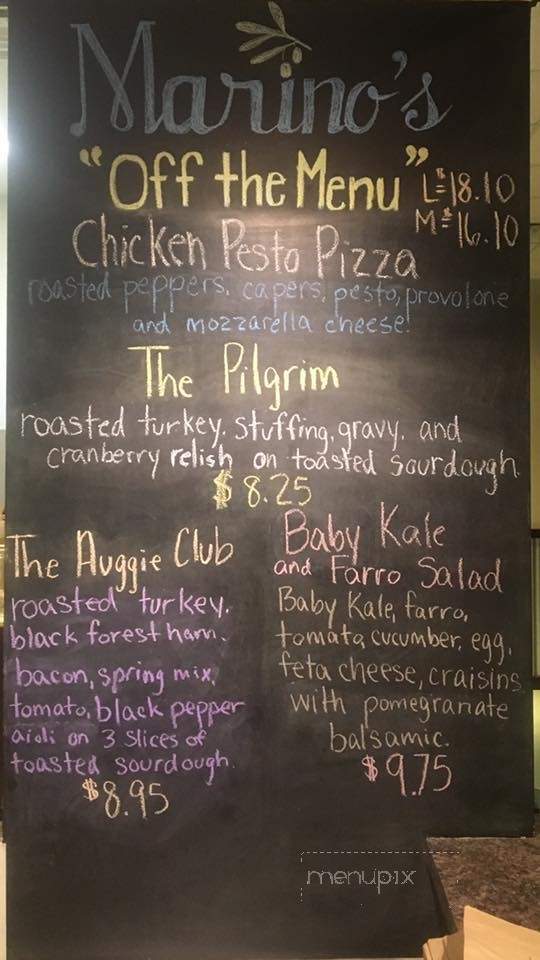 Marino's
"Off the Menu"
L=$18.10
M=$16.10
Chicken Pesto Pizza
roasted peppers, capers, pesto, provolone
and mozzarella cheese!
The Pilgrim
roasted turkey, stuffing, gravy, and
cranberry relish on toasted sourdough
$8.25
The Auggie Club
roasted turkey,
black forest ham,
bacon, spring mix,
tomato, black pepper
aioli on 3 slices of
toasted sourdough.
$8.95
Baby Kale
and Farro Salad
Baby Kale, farro,
tomata, cucumber, egg,
feta cheese, craisins
with pomegranate
balsamic.
$9.75
menupix